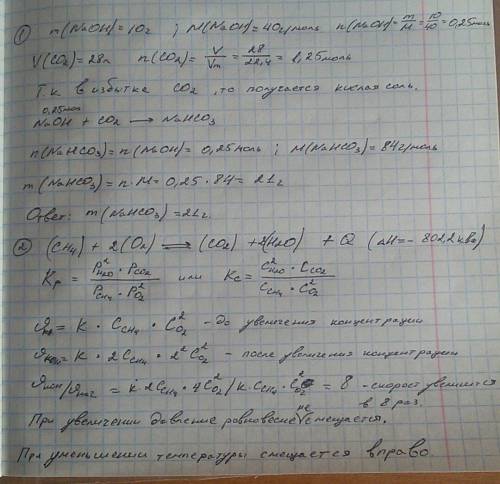 ① m(NaOH)=10г ; M(NaOH)=40г/моль n(NaOH)=m/M=10/40=0,25моль
V(CO₂)=28л n(CO₂)=V/Vm=28/22,4=1,25моль
Т.к в избытке CO₂, то получается кислая соль.
0,25моль
NaOH + CO₂ → NaHCO₃
n(NaHCO₃)=n(NaOH)=0,25моль ; M(NaHCO₃)=84г/моль
m(NaHCO₃)=n·M=0,25·84=21г
Ответ: m(NaHCO₃)=21г.
② (CH₄) + 2(O₂) ⇄ (CO₂) + 2(H₂O) + Q (ΔH=-802,2кДж)
Kp = P²H₂O·PCO₂ / PCH₄·P²O₂ или Kc = C²H₂O·CCO₂ / CCH₄·C²O₂
= K·CCH₄·C²O₂ - до увеличения концентрации
= K·2CCH₄·2²C²O₂ - после увеличения концентрации
= K·2CCH₄·4C²O₂/K·CCH₄·C²O₂ = 8 - скорость увеличится
в 8 раз.
При увеличении давление равновесие не смещается.
При уменьшении температуры смещается вправо.